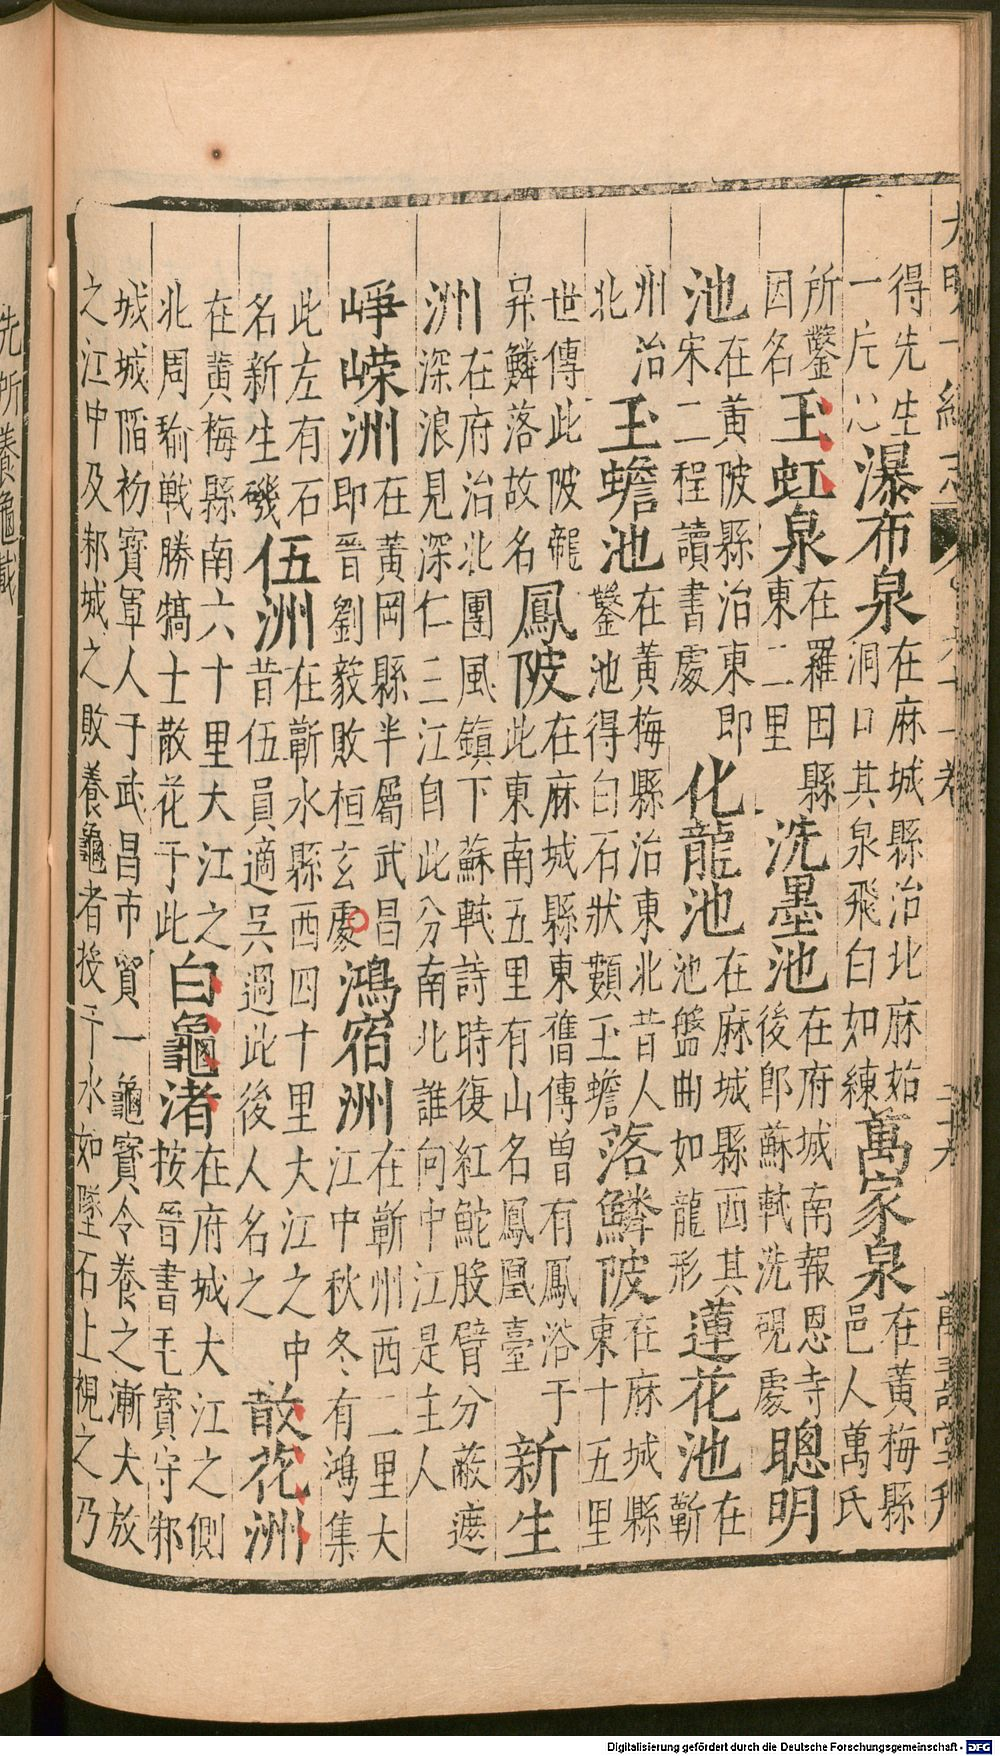 得先生
一片心
瀑布泉
在麻城縣治北麻姑
洞口其泉飛白如練
萬家泉
在黃梅縣
邑人萬氏
所鑿
因名
玉虹泉
在羅田縣
東二里
洗墨池
在府城南報恩寺
後即蘇軾洗硯處
聰明
池
在黃陂縣治東即
宋二程讀書處
化龍池
在麻城縣西其
池盤曲如龍形
蓮花池
在
蘄
州治
北
玉蟾池
在黃梅縣治東北昔人
鑿池得白石狀類玉蟾
落鱗陂
在麻城縣
東十五里
世傳此陂龍
呆鱗落故名
鳳陂
在麻城縣東舊傳曾有鳳浴于
此東南五里有山名鳳凰臺
新生
洲
在府治北團風鎮下蘇軾詩時復紅鮀股臂分蔽遮
深浪見深仁三江自此分南北誰向中江是主人
崢嶸洲
在黃岡縣半屬武昌
即晉劉毅敗桓玄處
鴻宿洲
在蘄州西二里大
江中秋冬有鴻集
此左有石
名新生磯
伍洲
在蘄水縣西四十里大江之中
昔伍員適吳過此後人名之
散花洲
在黃梅縣南六十里大江之
北周瑜戰勝犒士散花于此
白龜渚
在府城大江之側
按晉書毛寶守邾
城城陷初寶軍人于武昌市買一龜寶令養之漸大放
之江中及邾城之敗養龜者投于水如墜石上視之乃
先所養龜載
Digitalisierung gefördert durch die Deutsche Forschungsgemeinschaft - DFG